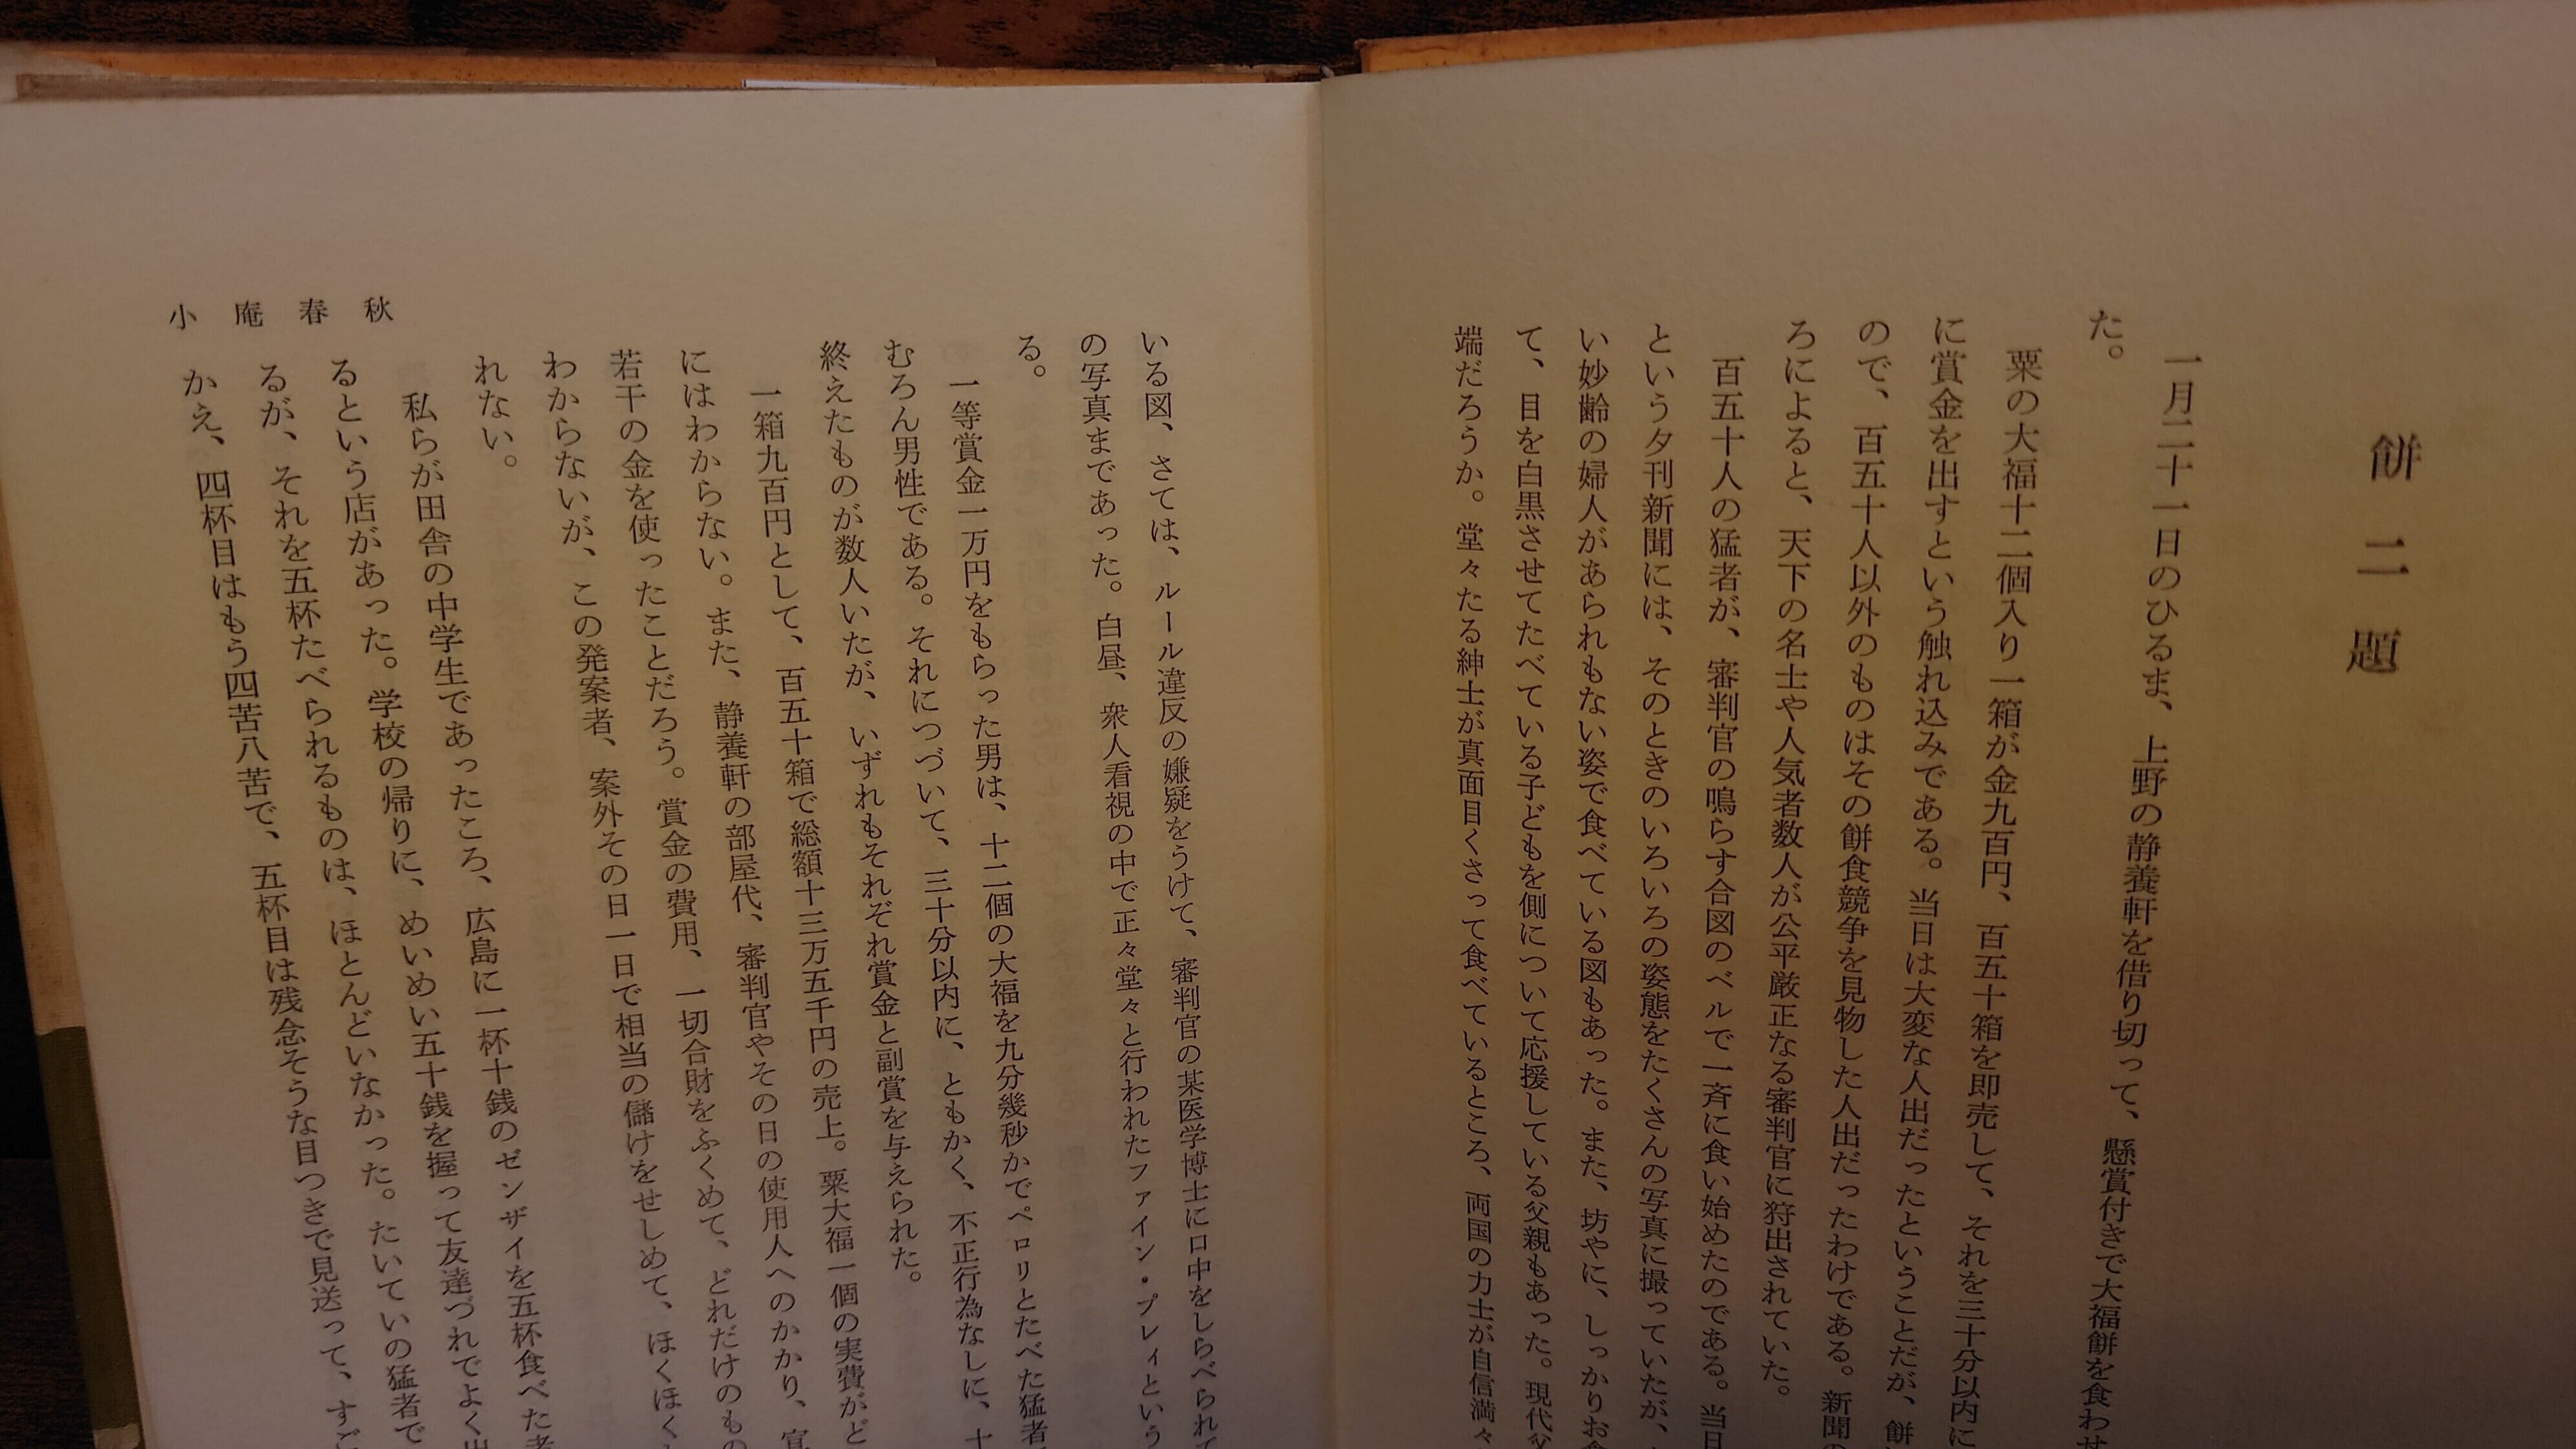 餅二題
一月二十一日のひるま、上野の静養軒を借り切って、懸賞付きで大福餅を食わせ
た。
粟の大福十二個入り一箱が金九百円、百五十箱を即売して、それを三十分以内に
に賞金を出すという触れ込みである。当日は大変な人出だったということだが、餅
ので、百五十人以外のものはその餅食競争を見物した人出だったわけである。新聞の
ろによると、天下の名士や人気者数人が公平厳正なる審判官に狩出されていた。
百五十人の猛者が、審判官の鳴らす合図のベルで一斉に食い始めたのである。当日
という夕刊新聞には、そのときのいろいろの姿態をたくさんの写真に撮っていたが、
い妙齢の婦人があられもない姿で食べている図もあった。また、坊やに、しっかりお
て、目を白黒させてたべている子どもを側について応援している父親もあった。現代父
端だろうか。堂々たる紳士が真面目くさって食べているところ、両国の力士が自信満々
いる図、さては、ルール違反の嫌疑をうけて、審判官の某医学博士に口中をしらべられて
の写真まであった。白昼、衆人看視の中で正々堂々と行われたファイン・プレィという
る。
一等賞金一万円をもらった男は、十二個の大福を九分幾秒かでペロリとたべた猛者
むろん男性である。それにつづいて、三十分以内に、ともかく、不正行為なしに、十
終えたものが数人いたが、いずれもそれぞれ賞金と副賞を与えられた。
一箱九百円として、百五十箱で総額十三万五千円の売上。粟大福一個の実費がど
にはわからない。また、静養軒の部屋代、審判官やその日の使用人へのかかり、宣
若干の金を使ったことだろう。賞金の費用、一切合財をふくめて、どれだけのもの
わからないが、この発案者、案外その日一日で相当の儲けをせしめて、ほくほく
れない。
私らが田舎の中学生であったころ、広島に一杯十銭のゼンザイを五杯食べた者
るという店があった。学校の帰りに、めいめい五十銭を握って友達づれでよく出
るが、それを五杯たべられるものは、ほとんどいなかった。たいていの猛者で
かえ、四杯目はもう四苦八苦で、五杯目は残念そうな目つきで見送って、すご
小庵春秋